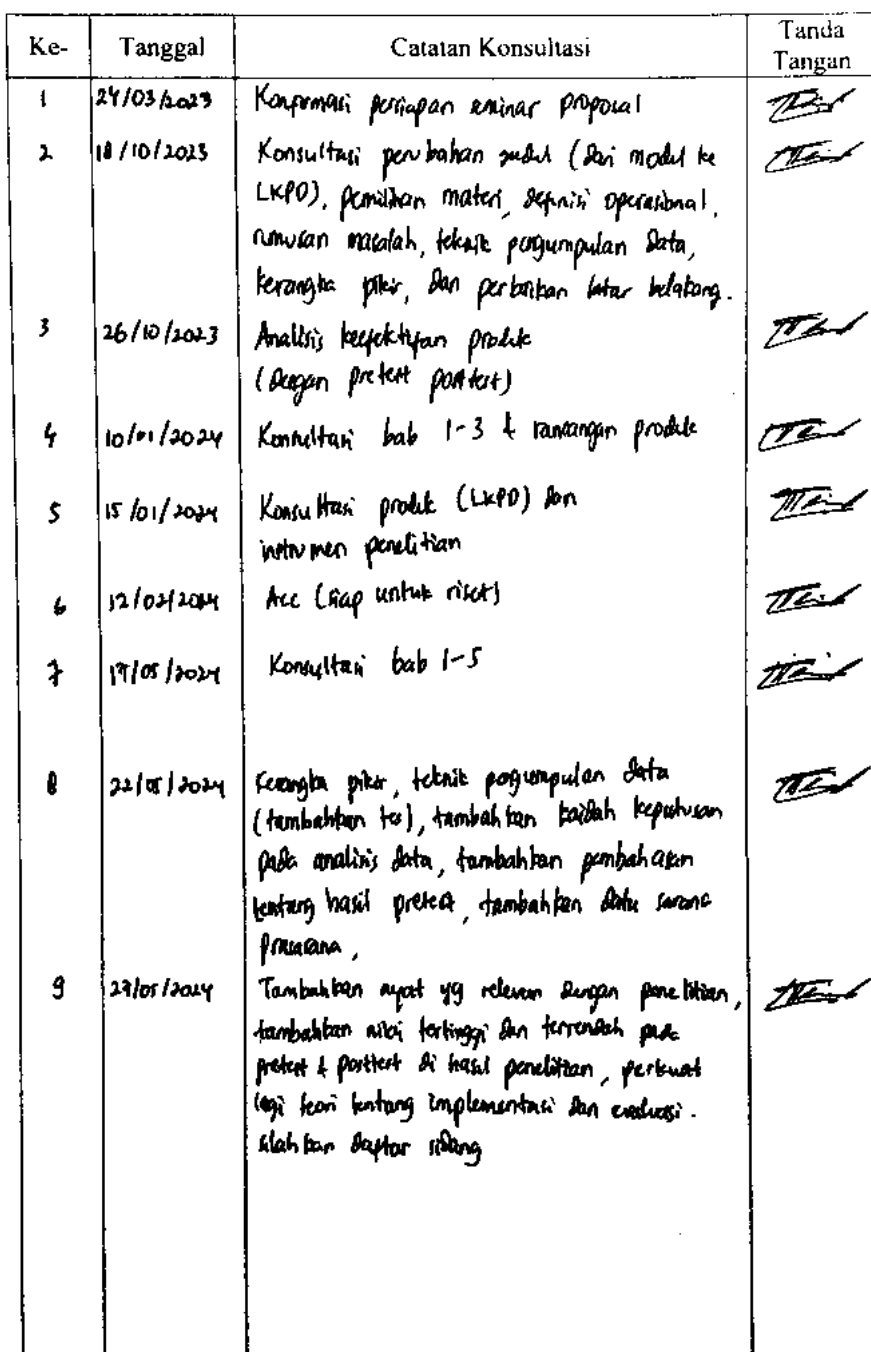 Ke- Tanggal Catatan Konsultasi Tanda Tangan
1 24/03/2023 Konfirmasi persiapan seminar proposal
2 18/10/2023 Konsultasi perubahan judul (dari modul ke
LKPD), pemilihan materi, definisi operasional,
rumusan masalah, teknik pengumpulan data,
kerangka pikir, dan perbaikan latar belakang.
3 26/10/2023 Analisis keefektifan produk
(dengan pretest posttest)
4 10/01/2024 Konsultasi bab 1-3 & rancangan produk
5 15/01/2024 Konsultasi produk (LKPD) dan
instrumen penelitian
6 12/02/2024 Acc (siap untuk riset)
7 /05/2024 Konsultasi bab 1-5
8 22/05/2024 Kerangka pikir, teknik pengumpulan data
(tambahkan tes), tambahkan kaidah keputusan
pada analisis data, tambahkan pembahasan
tentang hasil pretest, tambahkan data sarana
prasarana,
9 /05/2024 Tambahkan ayat yg relevan dengan penelitian,
tambahkan nilai tertinggi dan terrendah pada
pretest & posttest di hasil penelitian, perkuat
lagi teori tentang implementasi dan evaluasi.
silahkan daftar sidang